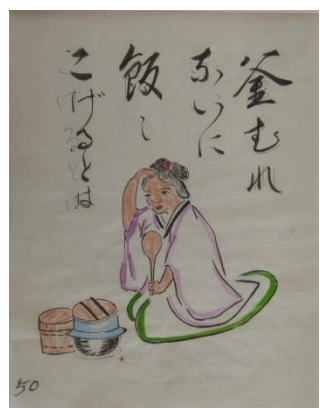 釜むれ
ないに
飯し
こげるとは
50